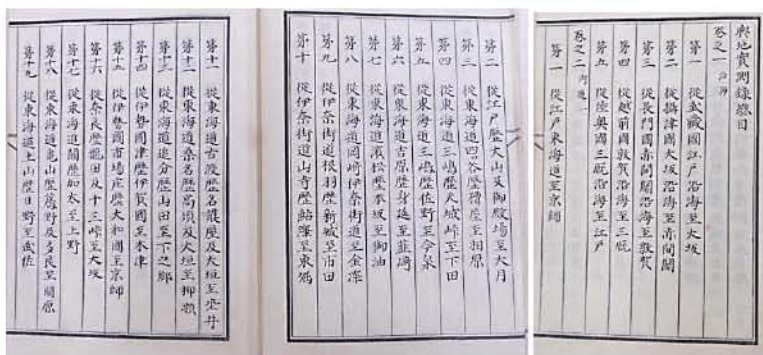 輿地實測録總目
巻之一 沿海
第一 從武藏國江戸沿海至大坂
第二 從攝津國大坂沿海至赤間關
第三 從長門國赤間關沿海至敦賀
第四 從越前國敦賀沿海至三厩
第五 從陸奥國三厩沿海至江戸
巻之二 内地一
第一 從江戸東海道至京師
第二 從江戸歷大山及御殿場至大月
第三 從東海道四谷歷 至相原
第四 從東海道三嶋歷天城峠至下田
第五 從東海道三嶋歷佐野至今泉
第六 從東海道吉原歷身延至韮﨑
第七 從東海道濱松歷本坂至御油
第八 從東海道岡﨑伊奈街道至金澤
第九 從伊奈街道根羽歷新城至市田
第十 從伊奈街道山寺歷鮎澤至東堀
第十一 從東海道古渡歷名護屋及大垣至垂井
第十二 從東海道桑名歷高須及大垣至柳瀬
第十三 從東海道追分歷山田至下之郷
第十四 從伊勢國津歷伊賀國至木津
第十五 從伊勢國市場庄歷大和國至京師
第十六 從奈良歷龍田及十三峠至大坂
第十七 從東海道關歷加太至上野
第十八 從東海道亀山歷 野及多良至關原
第十九 從東海道土山歷日野至武佐